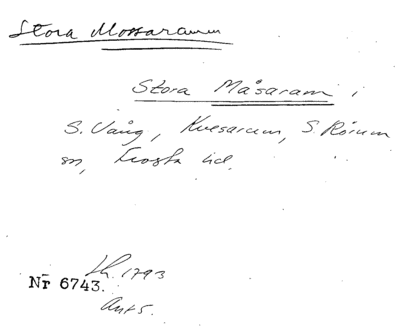 Stora Mossaramm
Stora Måsaram,
S. Vång, Kvesarum, S. Rörum
sn, Frosta hd.
Lh. 1793
Nr 6743.
Ant 5.